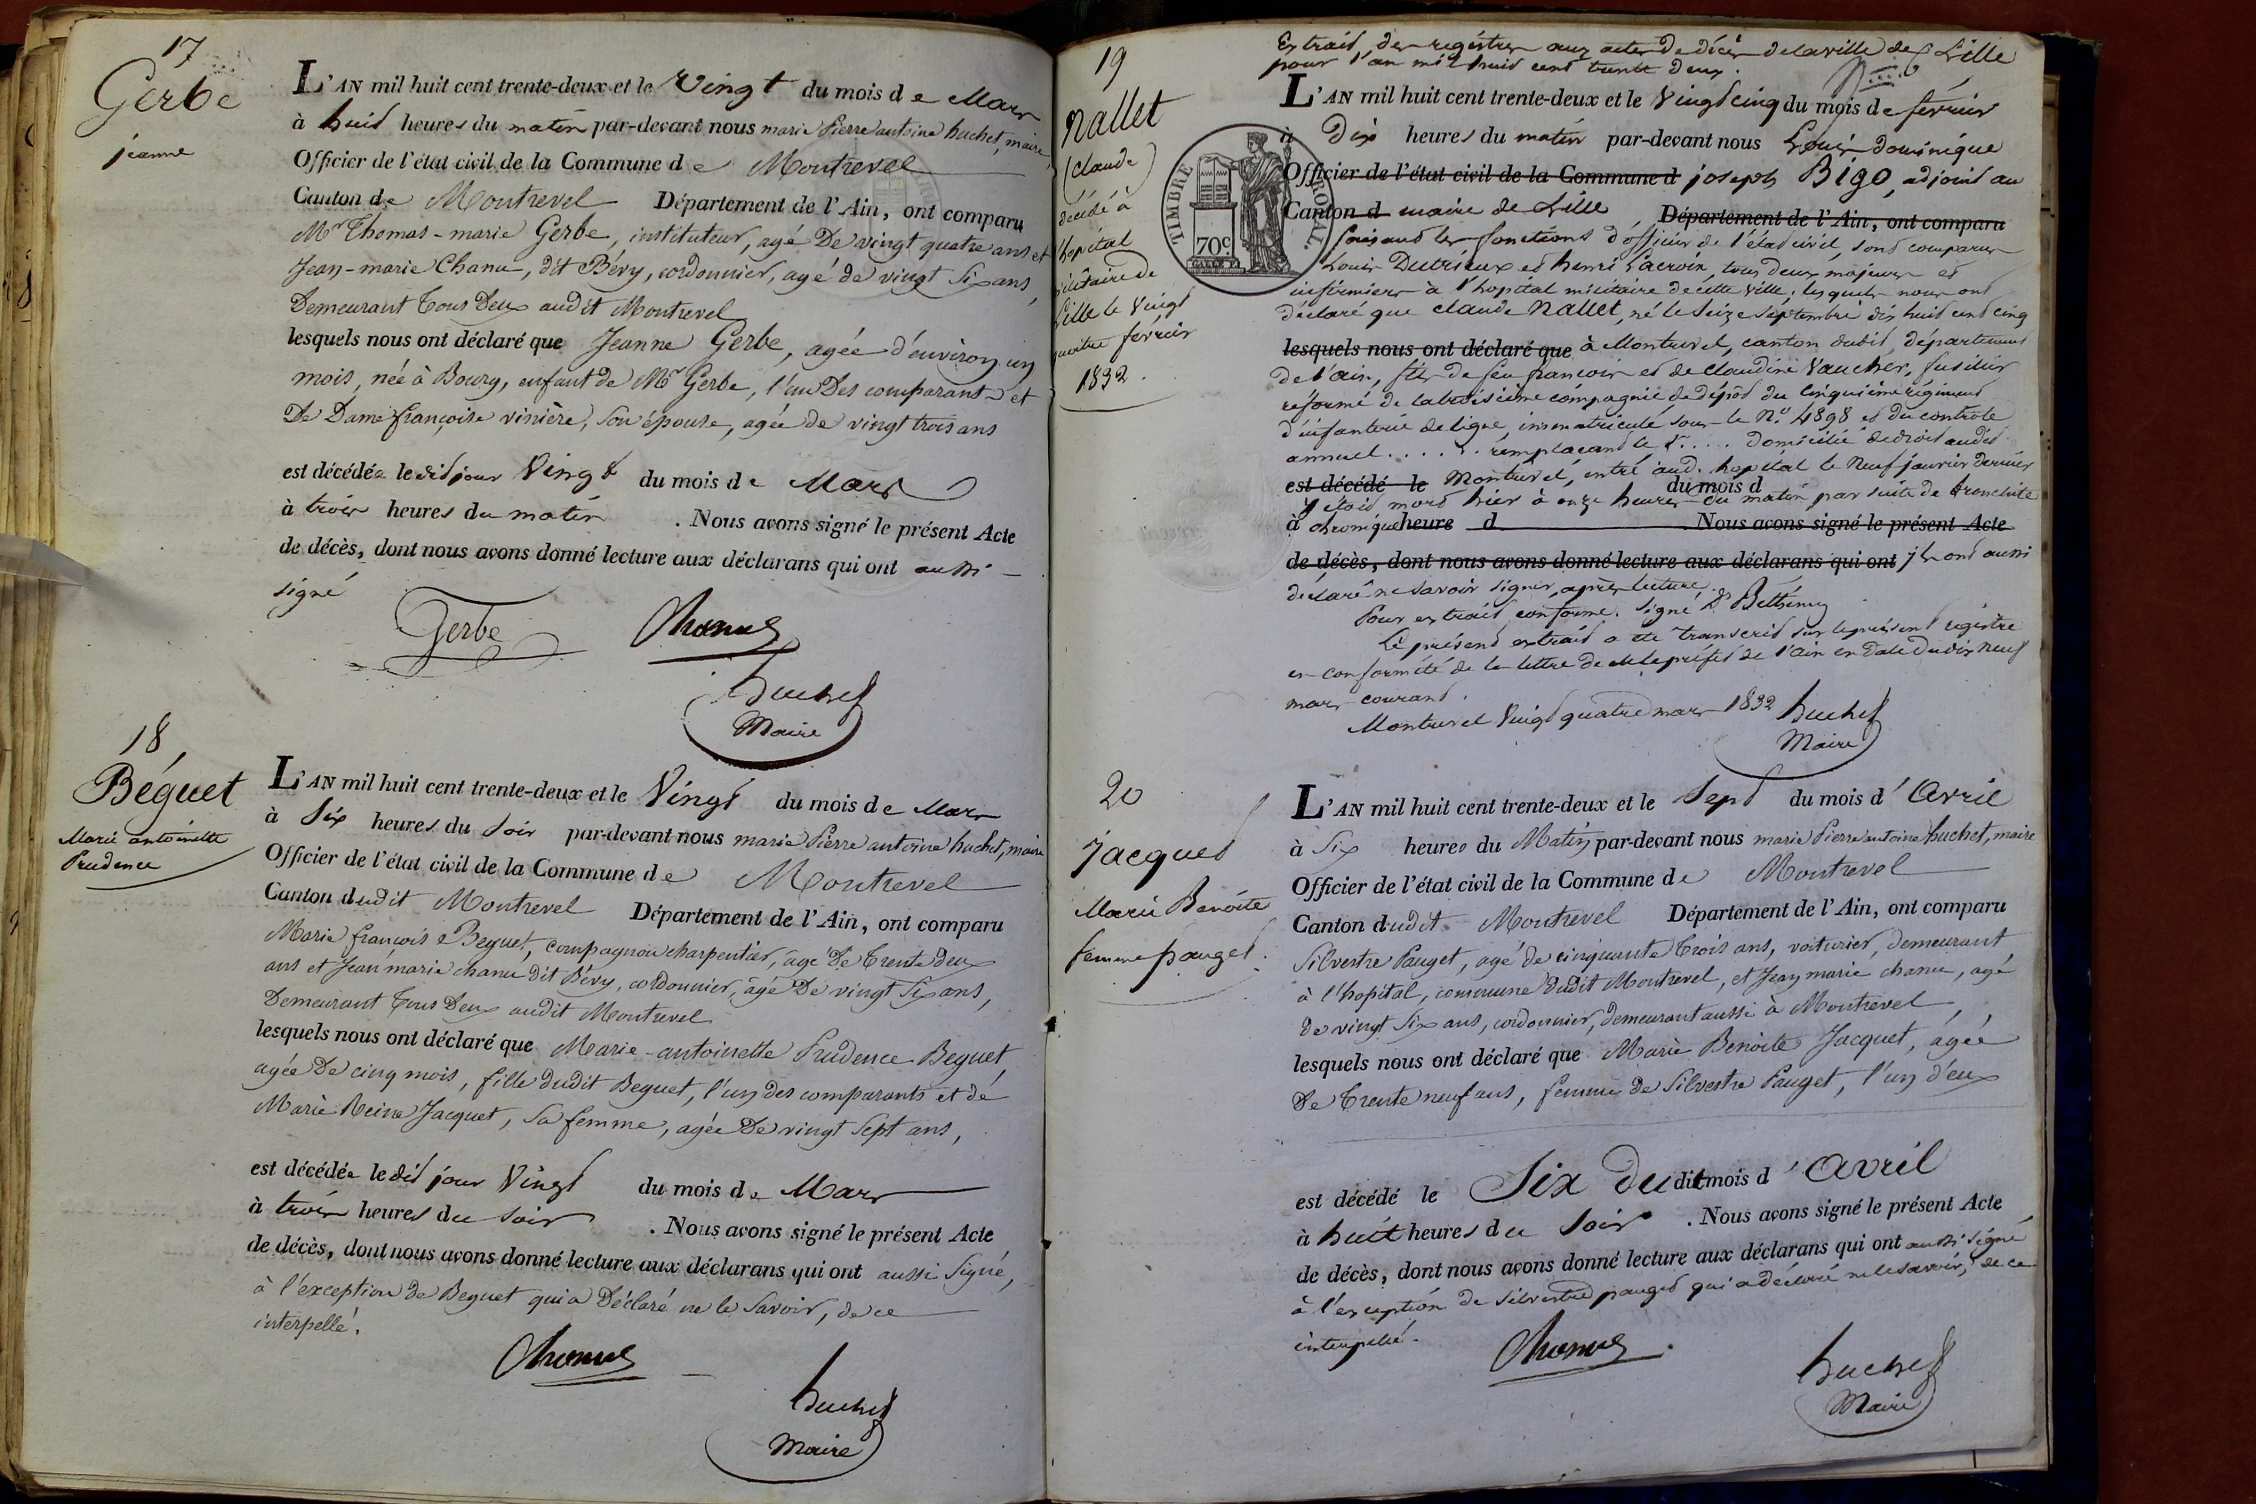 17
Gerbe
jeanne
L'AN mil huit cent trente-deux et le Vingt du mois de Mars
à huit heures du matin par-devant nous marie Pierre antoine huchet, maire
Officier de l'état civil de la Commune de Montrevel
Canton de Montrevel Département de l'Ain, ont comparu
Mr Thomas-marie Gerbe, instituteur, agé De vingt quatre ans et
Jean-marie Chanu, dit Bévy, cordonnier, agé de vingt Six ans,
Demeurant Tous Deux audit Montrevel
lesquels nous ont déclaré que Jeanne Gerbe, agée d'environ un
mois, née à Bourg, enfant de Mr Gerbe, l'un Des comparants et
De Dame françoise vinière, Son épouse, agée de vingt trois ans
est décédée ledit jour Vingt du mois de Mars
à trois heures du matin . Nous avons signé le présent Acte
de décès, dont nous avons donné lecture aux déclarans qui ont aussi
signé
Gerbe Chanu
huchet
Maire
18
Béguet
Marie antoinette
Prudence
L'AN mil huit cent trente-deux et le Vingt du mois de Mars
à Six heures du Soir par-devant nous marie Pierre antoine huchet, maire
Officier de l'état civil de la Commune de Montrevel
Canton dudit Montrevel Département de l'Ain, ont comparu
Marie françois Beguet, compagnon charpentier, agé De Trente deux
ans et Jean marie chanu dit Bévy, cordonnier, âgé De vingt Six ans,
Demeurant Tous Deux audit Montrevel
lesquels nous ont déclaré que Marie-antoinette Prudence Beguet,
agée De cinq mois, fille dudit Beguet, l'un des comparants et de
Marie Reine Jacquet, Sa femme, agée De vingt Sept ans,
est décédée ledit jour Vingt du mois de Mars
à trois heures du soir . Nous avons signé le présent Acte
de décès, dont nous avons donné lecture aux déclarans qui ont aussi Signé,
à l'exception de Beguet qui a Déclaré ne le Savoir, de ce
interpellé.
Chanu
huchet
Maire
19
Nallet
(claude)
décédé à
l'hopital
militaire de
Lille le Vingt
quatre fevrier
1832.
TIMBRE ROYAL
70c
Extrait, des registres aux actes de décès de la ville de Lille
pour l'an mil huit cent trente deux.
L'AN mil huit cent trente-deux et le Vingt cinq du mois de février
à Dix heures du matin par-devant nous Louis dominique
Officier de l'état civil de la Commune d joseph Bigo, adjoint au
Canton d maire de Lille, Département de l'Ain, ont comparu
faisant les fonctions d'officier de l'état civil, sont comparus
Louis Dutrieux et henri Lacroix, tous deux majeurs et
infirmiers à l'hopital militaire de cette ville, lesquels nous ont
déclaré que claude Nallet, né le Seize Septembre dix huit cent cinq
lesquels nous ont déclaré que à Montrevel, canton dudit, département
de l'ain, fils de feu francois et de claudine Vaucher, fusilier
réformé de la troisième compagnie de dépôt du cinquième régiment
d'infanterie de ligne, immatriculé sous le No. 4898 et du controle
annuel ..... remplacant le Sr.... domicilié de droit audit
est décédé le Montrevel, entré aud. hopital le Neuf janvier dernier
du mois d
y etoit mort hier à onze heures du matin par suite de bronchite
à chronique heure d . Nous avons signé le présent Acte
de décès, dont nous avons donné lecture aux déclarans qui ont ils ont aussi
déclaré ne savoir signer, après lecture.
Pour extrait conforme. Signé Bethemy
Le présent extrait a été transcrit sur le présent régistre
en conformité de la lettre de Mr le préfet de l'ain en date du dix neuf
mars courant.
Montrevel Vingt quatre mars 1832 huchet
Maire
20
Jacquet
Marie Benoite
femme pauget.
L'AN mil huit cent trente-deux et le Sept du mois d'Avril
à Six heures du Matin par-devant nous marie Pierre antoine huchet, maire
Officier de l'état civil de la Commune de Montrevel
Canton dudit Montrevel Département de l'Ain, ont comparu
Silvestre Pauget, agé de cinquante Trois ans, voiturier, demeurant
à l'hopital, commune dudit Montrevel, et Jean marie chanu, agé
de vingt Six ans, cordonnier, demeurant aussi à Montrevel,
lesquels nous ont déclaré que Marie Benoite Jacquet, âgée
De Trente neuf ans, femme de Silvestre Pauget, l'un d'eux
est décédé le Six du dit mois d'Avril
à huit heures du Soir . Nous avons signé le présent Acte
de décès, dont nous avons donné lecture aux déclarans qui ont aussi signé
à l'exception de Silvestre pauget qui a déclaré ne le savoir, de ce
interpellé.
Chanu
huchet
Maire